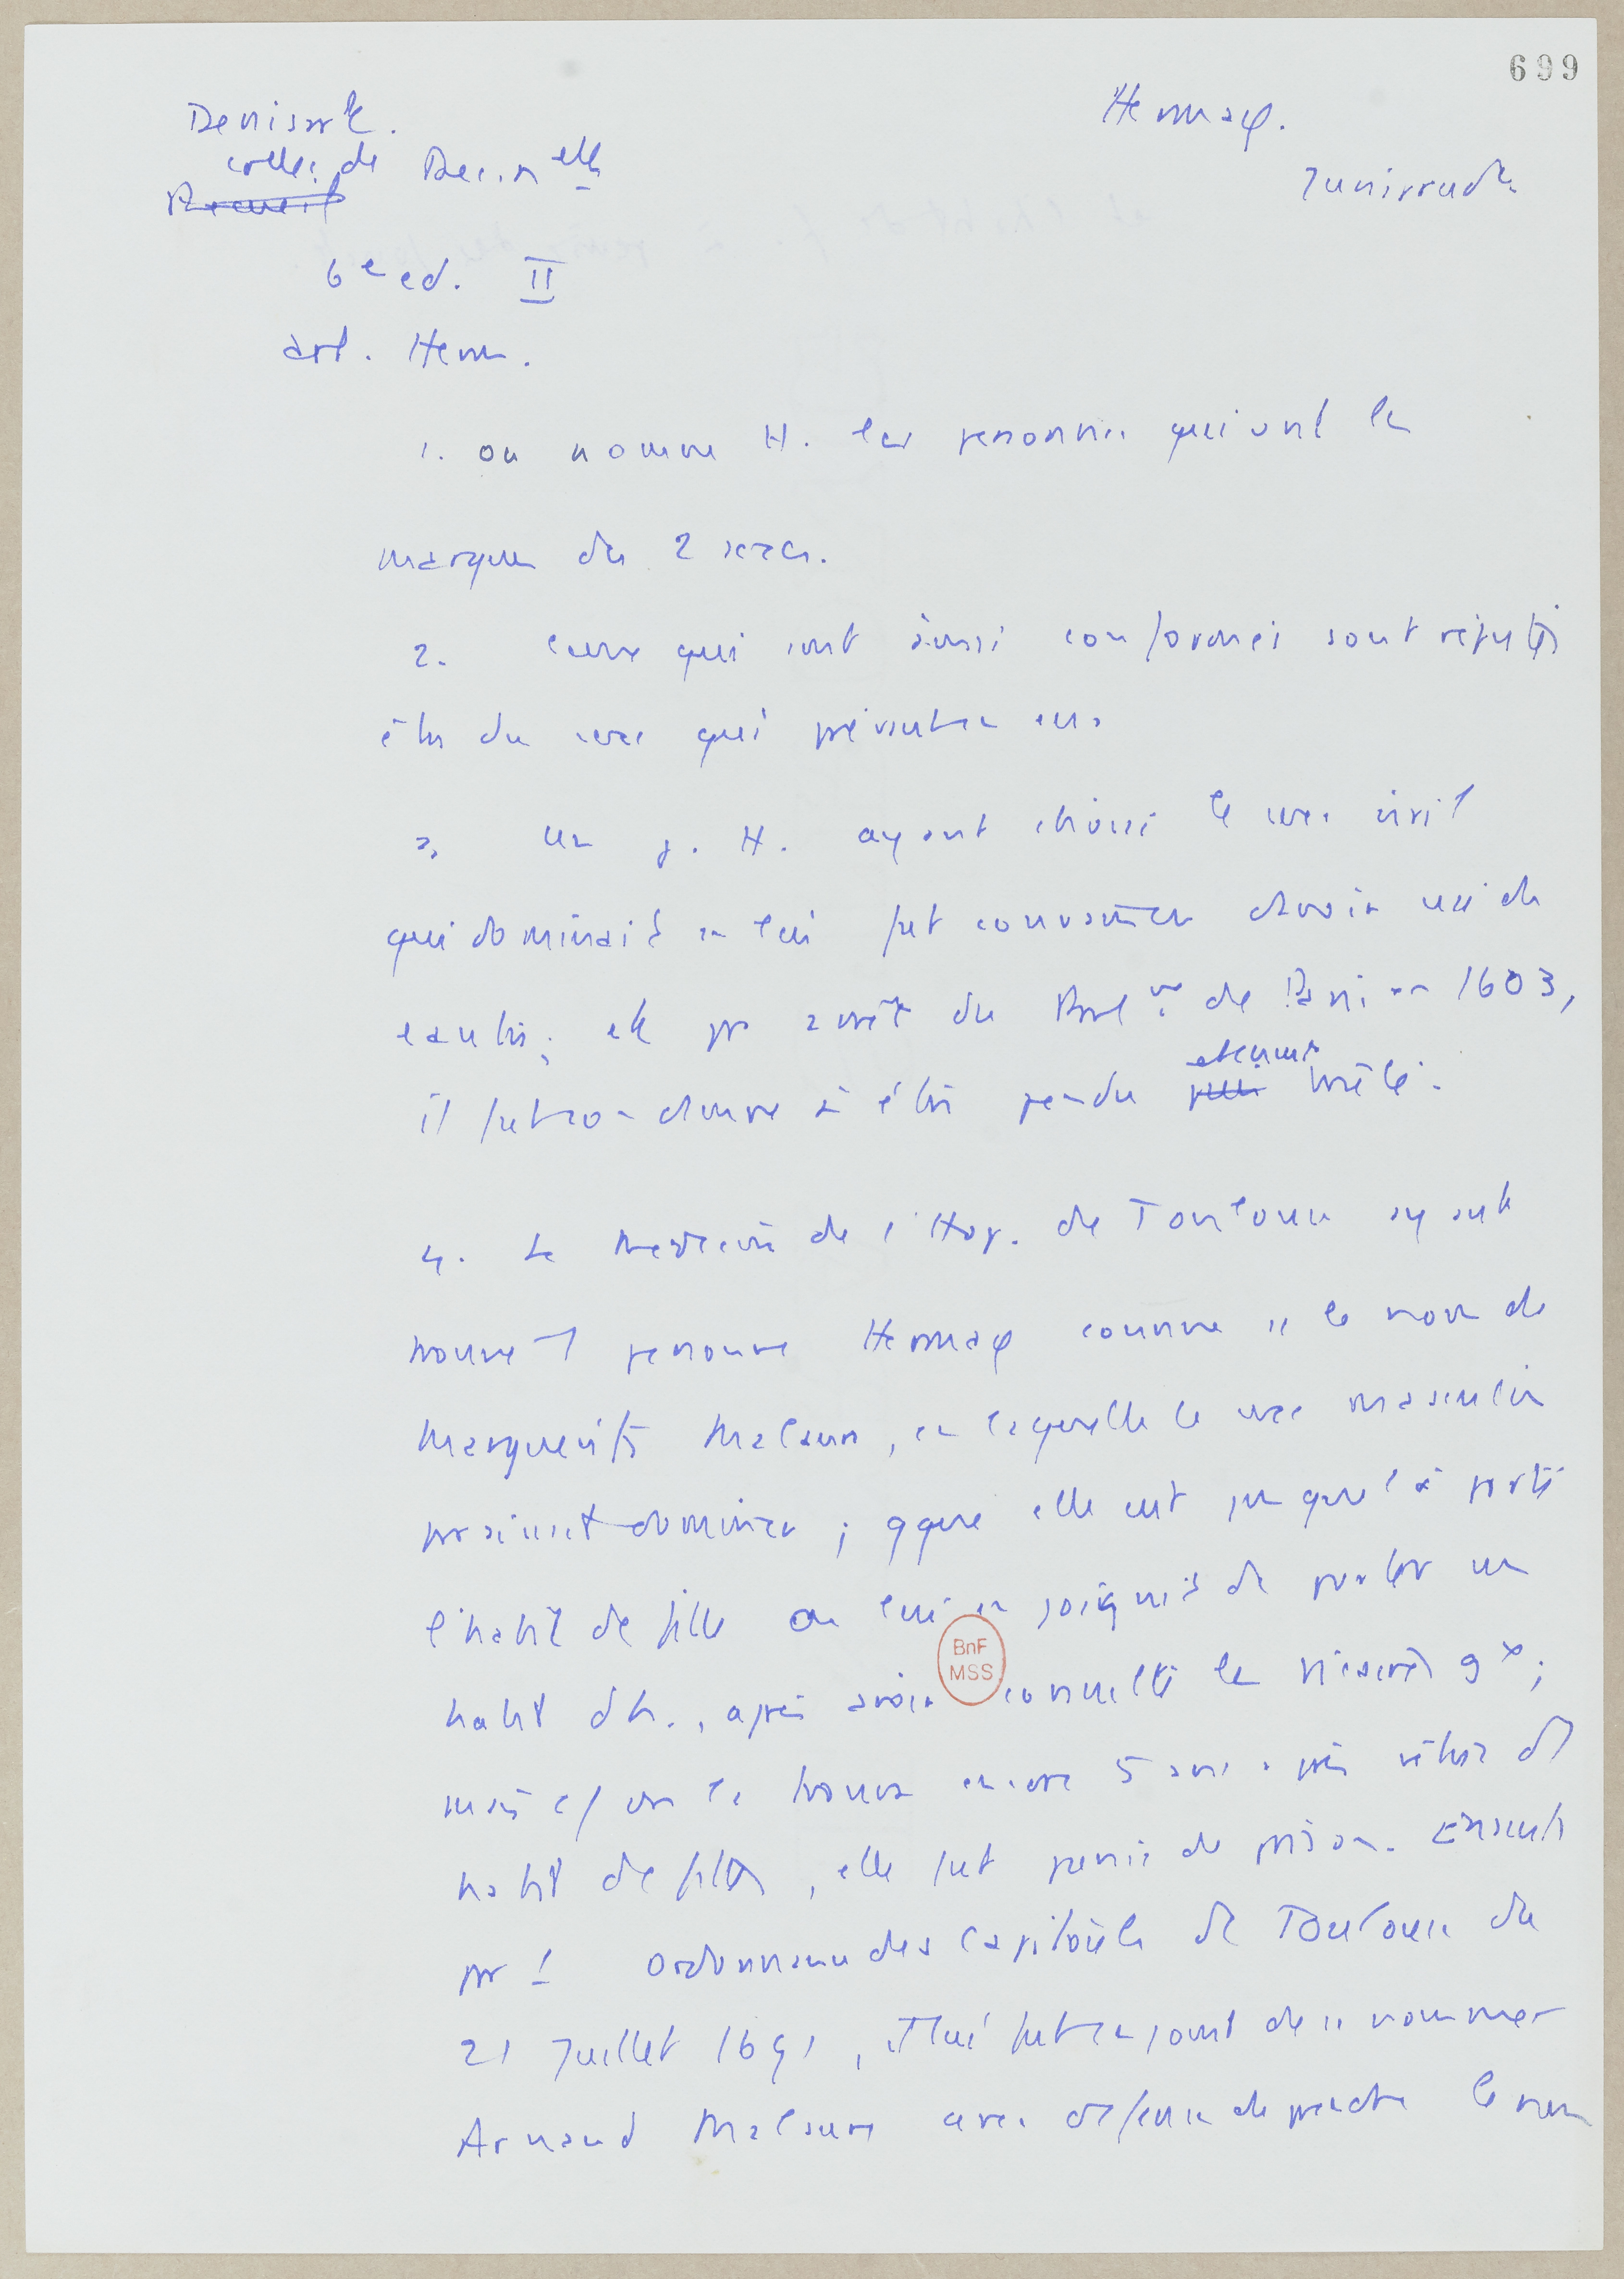 699
Hermaφ.
Jurisprud.
Denisart.
Collec. de Décis. n elles
Recueil
6e ed. II
art. Herm.
1. on nomme H. les personnes qui ont les
marques des 2 sexes.
2. ceux qui sont ainsi conformés sont réputés
être du sexe qui prévaut en eux
3. Un j. H. ayant choisi le sexe viril
qui dominait en lui fut convaincu d'avoir usé de
l'autre; et par arrêt du Parl. de Paris en 1603,
il fut condamné à être pendu puis et ensuite brûlé.
4. Le médecin de l'Hop. de Toulouse ayant
trouvé 1 personne Hermaφ connue ss le nom de
Marguerite Malaure, en laquelle le sexe masculin
paraissait dominer; qque elle eut jusque là porté
l'habit de fille on lui enjoignit de porter un
habit d'h., après avoir consulté les vicaires gx;
mais cô on la trouva encore 5 ans après vêtue d'1
habit de fille, elle fut punie de prison. Ensuite
par 1 ordonnance des Capitouls de Toulouse du
21 Juillet 1691, il lui fut enjoint de se nommer
Arnaud Malaure avec défense de prendre le nom
BnF
MSS